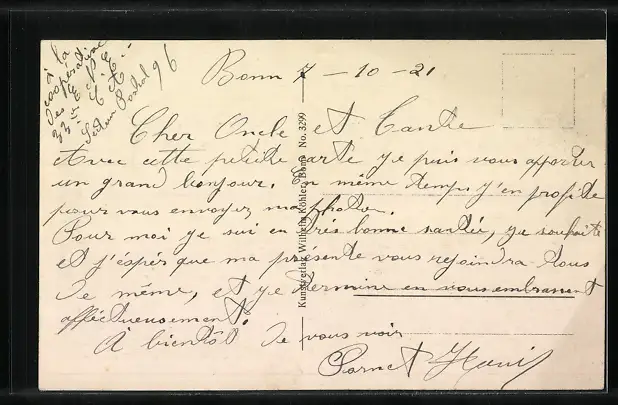 à la
coopérative
des E.P.E.T.
33
Secteur Postal 96
Bonn 7-10-21
Cher Oncle et Tante
Avec cette petite carte je puis vous apporter
un grand bonjour. En même temps j'en profite
pour vous envoyez ma photo.
Pour moi je sui en très bonne santée, je souhaite
et j'espér que ma présente vous rejoindra tous
de même, et je termine en vous embrassent
affectueusement.
À bientôt de vous voir
Kunstverlag Wilhelm Köhler, Bonn No. 3299